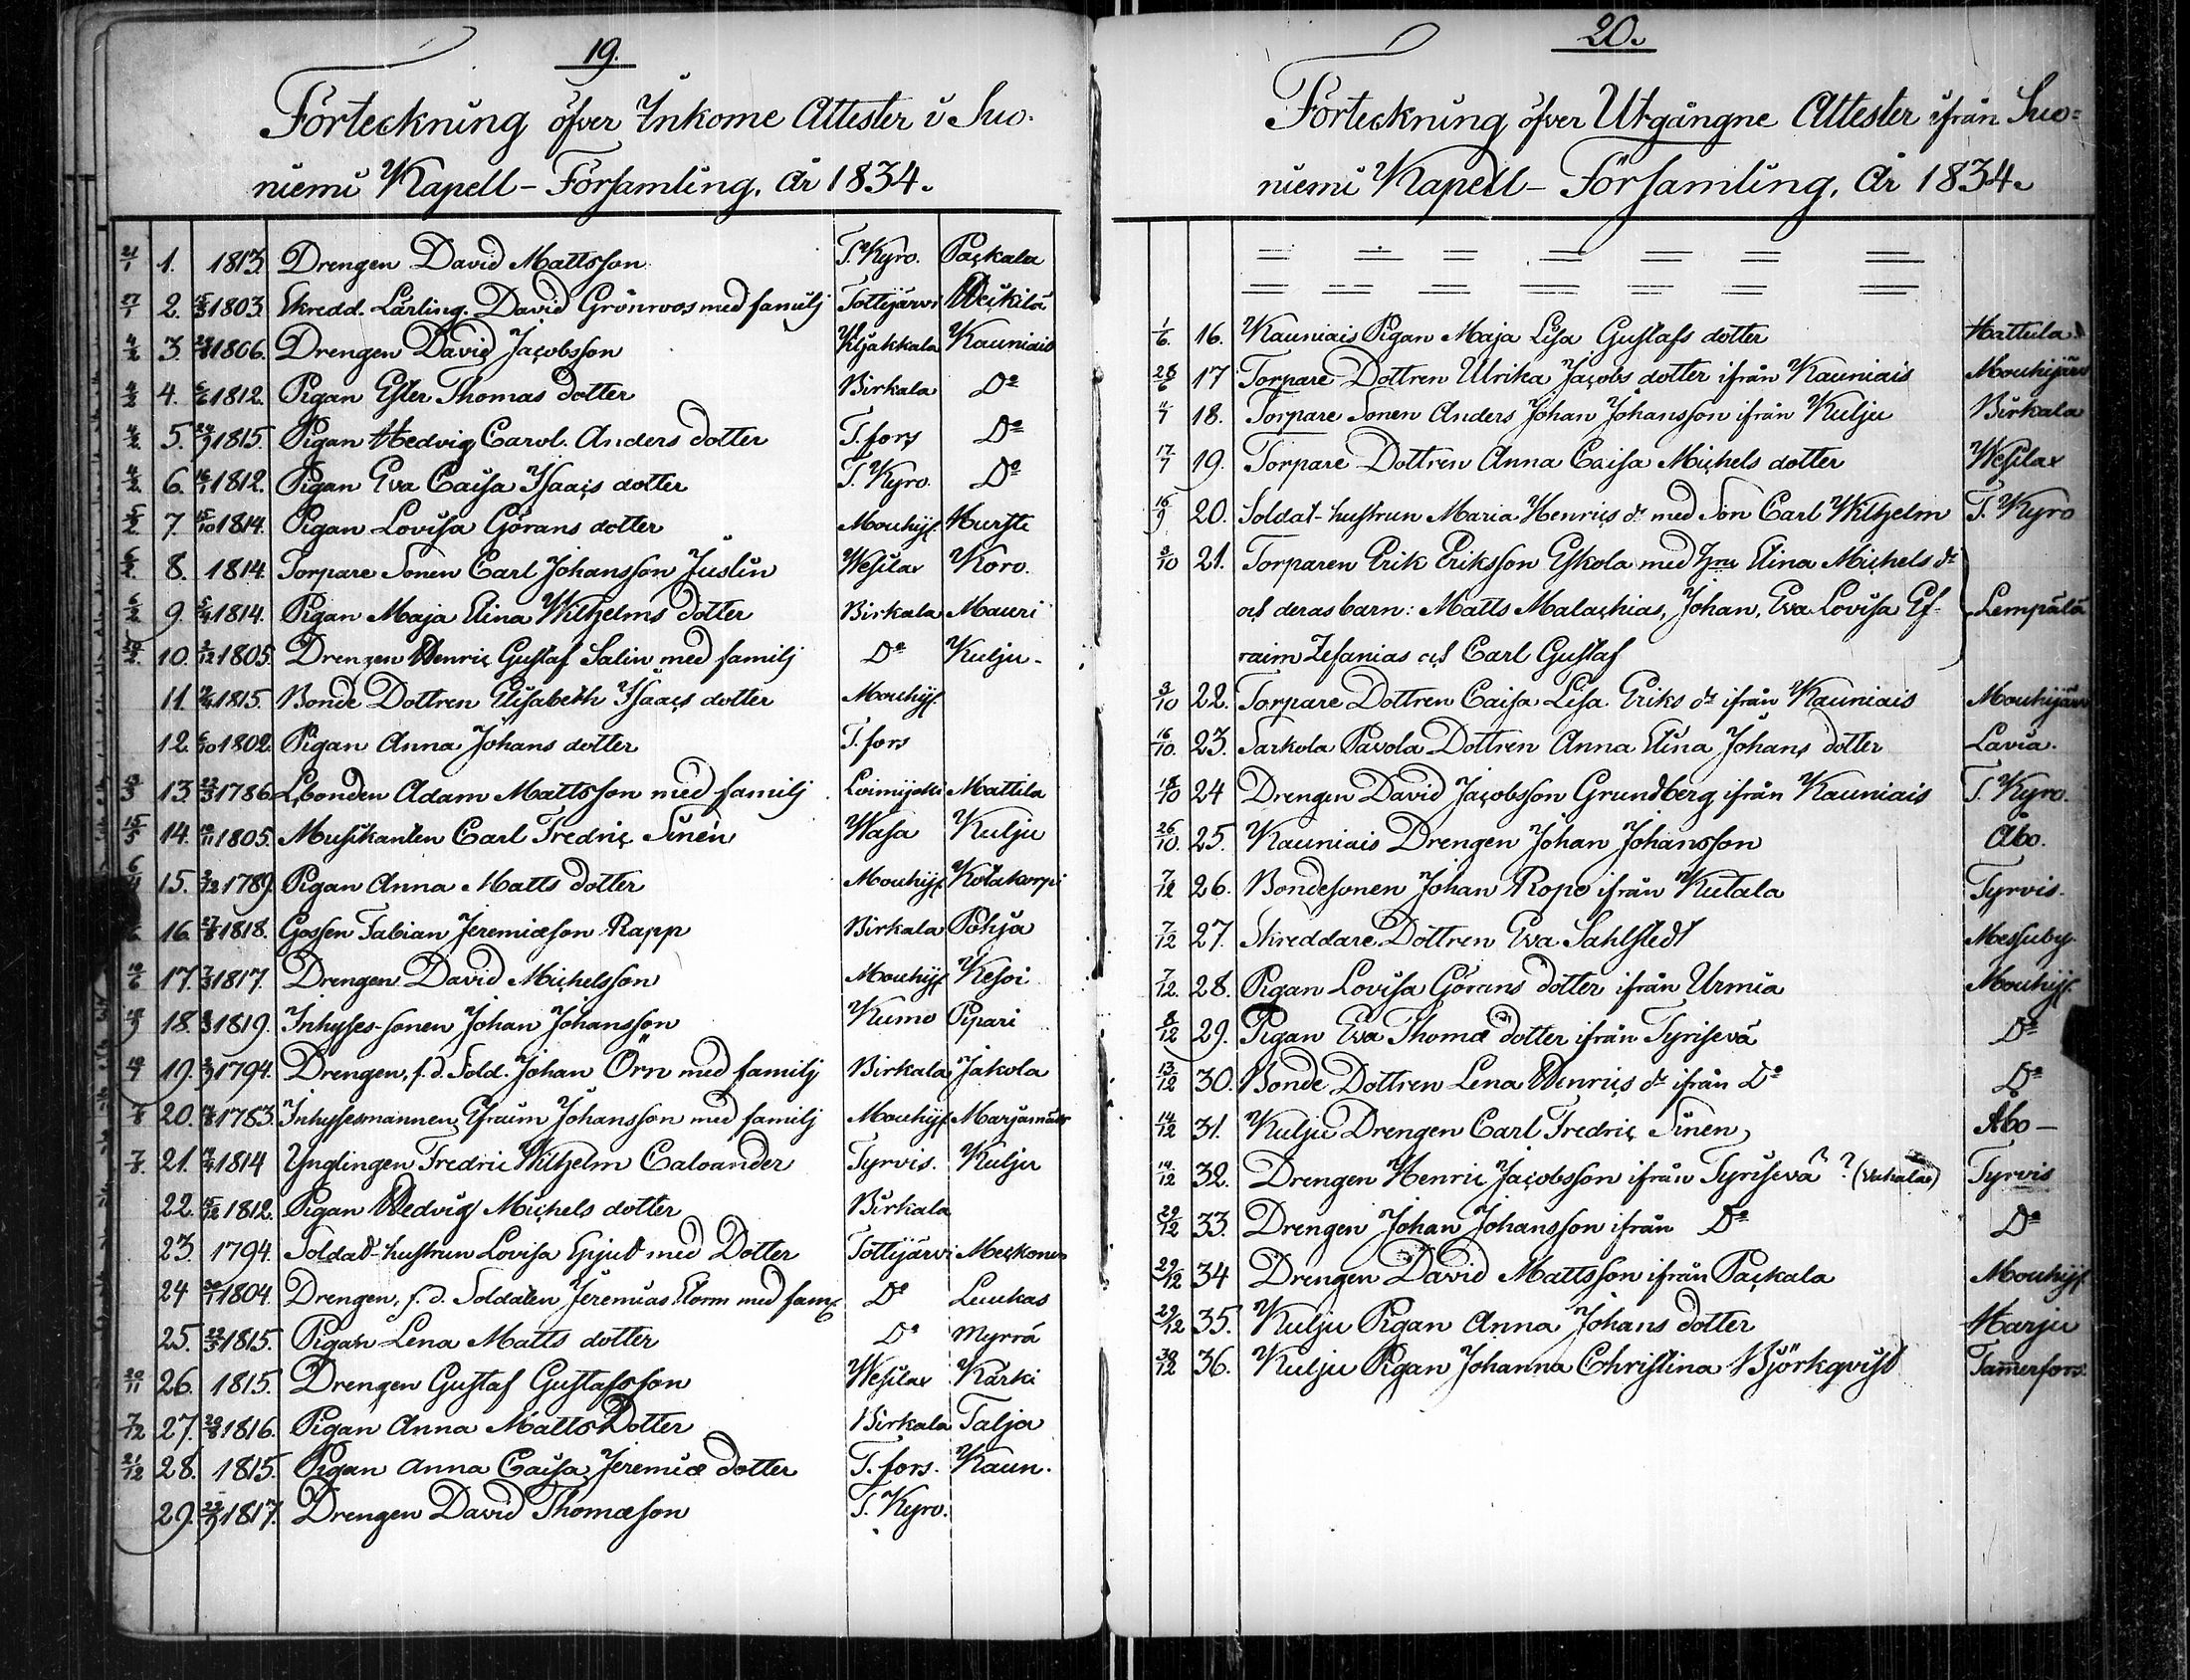 19.
Förteckning öfver Inkome Attester i Suo-
niemi Kapell-Församling, år 1834.
21/1 1. 1813. Drengen David Mattsson T. Kyro. Paçkala
27/1 2. 1803. Skredd. Lärling. David Grönroos med familj Tottijärvi Weikilä
4/2 3 1806. Drengen David Jaçobsson Kljakkala Kauniais
4/2 4. 6/6 1812. Pigan Ester Thomas dotter Birkala Do
4/2 5. 1815. Pigan Hedvig Carol. Anders dotter T.fors Do
4/2 6. 1812. Pigan Eva Caisa Isaaçs dotter T. Kyro. Do
5/2 7. 15/10 1814. Pigan Lovisa Görans dotter Mouhij. Hursti
6/2 8. 1814. Torpare Sonen Carl Johansson Juslin Wesilax Koro.
6/2 9. 5/4 1814. Pigan Maja Elina Wilhelms dotter Birkala Mauri
10. 1805. Drengen Henriç Gustaf Salin med familj Do Kulju-
11. 1815. Bonde Dottren Elisabeth Isaaçs dotter Mouhij.
12. 1802. Pigan Anna Johans dotter T.fors
13. 1786. Lbonden Adam Mattsson med familj Loimijoki Mattila
15/5 14. 1805. Musikanten Carl Fredriç Sinén Wasa Kulju
15. 1789. Pigan Anna Matts dotter Mouhij. Kotakorpi
16. 27/8 1818. Gossen Fabian Jeremiæson Rapp Birkala Pohja
10/6 17. 1817. Drengen David Michelsson Mouhij. Kesoi
18. 1819. Inhyses-sonen Johan Johansson Kumo Pipari
19. 1794. Drengen, f.d. Sold. Johan Örn med familj Birkala Jakola
20. 1783. Inhysesmannen Efraim Johansson med familj Mouhij. Marjamäki
7/8. 21. 1814 Ynglingen Fredric Wilhelm Caloander Tyrvis. Kulju
22. 15/12 1812. Pigan Hedvig Michels dotter Birkala
23. 1794. Soldat-hustrun Lovisa Spjut med Dotter Tottijärvi Meçkonen
24 1804. Drengen, f.d. Soldaten Jeremias Storm med fam. Do Luukas
25. 1815. Pigan Lena Matts dotter Do Myrrä
20/11 26. 1815. Drengen Gustaf Gustafsson Wesilax Kärki
7/12 27. 1816. Pigan Anna Matts Dotter Birkala Talja
21/12 28. 1815. Pigan Anna Caisa Jeremiæ dotter T.fors. Kaun.
29. 1817. Drengen David Thomæson T. Kyro.
20.
Förteckning öfver Utgångne Attester ifrån Suo=
niemi Kapell-Församling, år 1834.
1/6. 16. Kauniais Pigan Maja Lisa Gustafs dotter Hattula
28/6 17 Torpare Dottren Ulrika Jaçobs dotter ifrån Kauniais Mouhijärvi
11/7 18. Torpare Sonen Anders Johan Johansson ifrån Kulju Birkala
17/7 19. Torpare Dottren Anna Caisa Miçhels dotter Wesilax
16/9 20. Soldat-hustrun Maria Henriçs dr med Son Carl Wilhelm T. Kyro
3/10 21. Torparen Erik Eriksson Eskola med Hru Elina Miçhels dr
och deras barn: Matts Malaçhias, Johan, Eva Lovisa Ef- Lempälä
raim Zefanias och Carl Gustaf
3/10 22. Torpare Dottren Caisa Lisa Eriks dr ifrån Kauniais Mouhijärvi
16/10. 23. Sarkola Pavola Dottren Anna Elina Johans dotter Lavia.
18/10 24 Drengen David Jaçobsson Grundberg ifrån Kauniais T. Kyro.
26/10. 25. Kauniais Drengen Johan Johansson Åbo.
7/12 26. Bondesonen Johan Ropo ifrån Kutala Tyrvis.
7/12 27. Skreddare Dottren Eva Sahlstedt Messuby
7/12. 28. Pigan Lovisa Görans dotter ifrån Urmia Mouhij.
8/12 29. Pigan Eva Thomæ dotter ifrån Tyrisevä Do
13/12 30. Bonde Dottren Lena Henriçs dr ifrån Do Do
14/12 31. Kulju Drengen Carl Fredriç Sinen Åbo-
19/12 32. Drengen Henric Jaçobsson ifrån Tyrisevä ? (Vahalax) Tyrvis
29/12 33. Drengen Johan Johansson ifrån Do Do
29/12 34 Drengen David Mattsson ifrån Paçkala Mouhij.
29/12 35. Kulju Pigan Anna Johans dotter Harju
30/12 36. Kulju Pigan Johanna Christina Björkqvist Tamerfors.